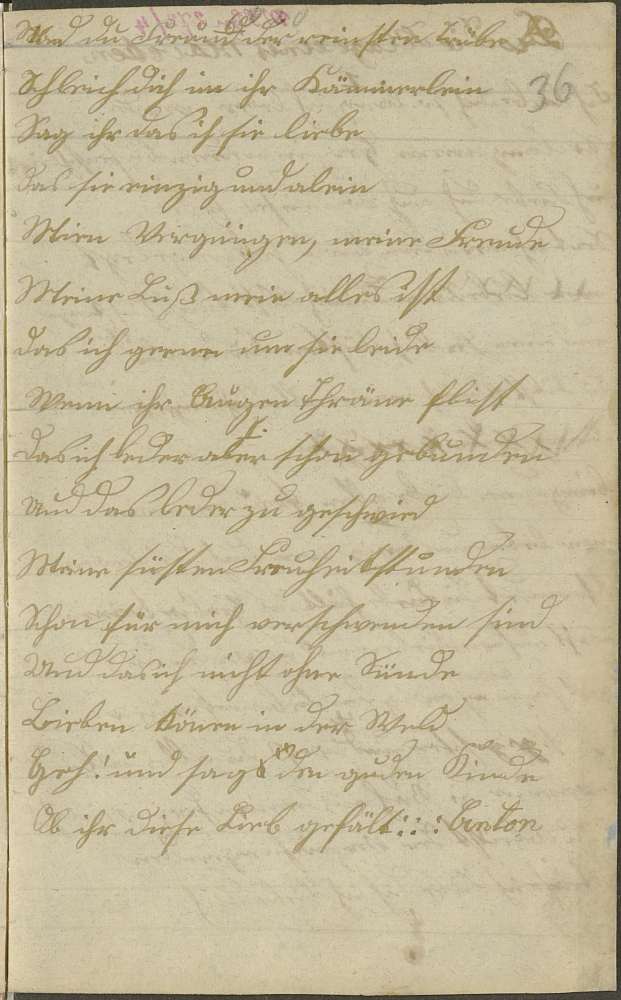 36
Und du Freund der reinsten Triebe
Schleich dich in ihr Kämmerlein
Sag ihr das ich sie liebe
das sie einzig und alein
Mein Vergnügen, meine Freude
Meine Luß mein alles ist
das ich gerne um sie leide
Wenn ihr Augen Thräne flist
das ich leder aber schon gebunden
Und das leder zu geschwind
Meine süsten Freuheitstunden
Schon für mich verschwenden sind
Und das ich nicht ohne Sünde
Lieben könen in der Weld
Geh! und sags den guden Kinde
Ob ihr diese Lieb gefält::: Anton